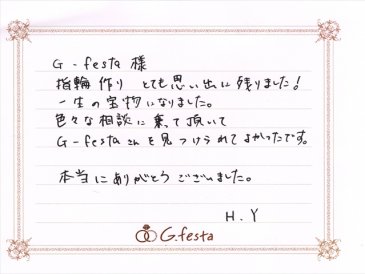 G-festa 様
指輪作り とても思い出に残りました!
一生の宝物になりました。
色々な相談に乗って頂いて
G-festaさんを見つけられてよかったです。
本当にありがとうございました。
H.Y
G.festa